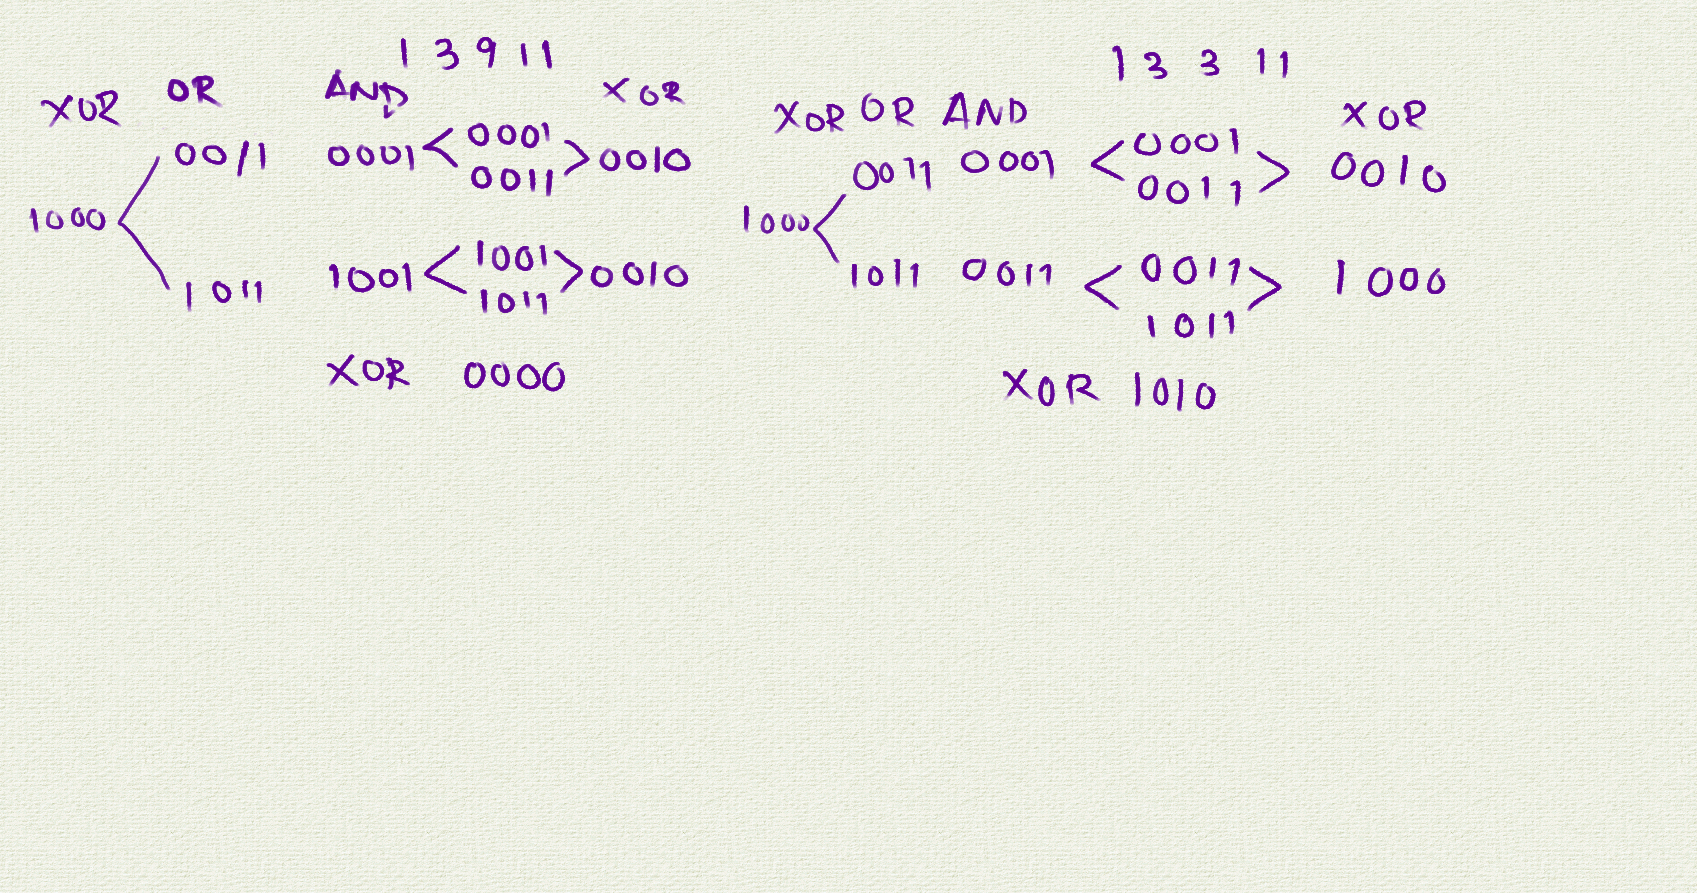 1 3 9 11
XOR OR AND XOR
0011 0001 0001 0010
0011
1000
1011 1001 1001 0010
1011
XOR 0000
1 3 3 11
XOR OR AND XOR
0011 0001 0001 0010
0011
1000
1011 0011 0011 1000
1011
XOR 1010